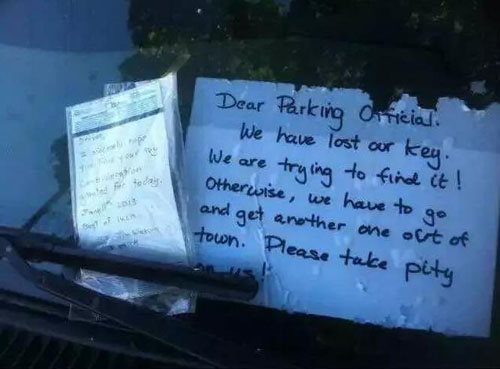 I sincerely hope
you find your key
Contravention
waived for today.
Best of luck
Dear Parking Official.
We have lost our key.
We are trying to find it!
Otherwise, we have to go
and get another one out of
town. Please take pity
on us!